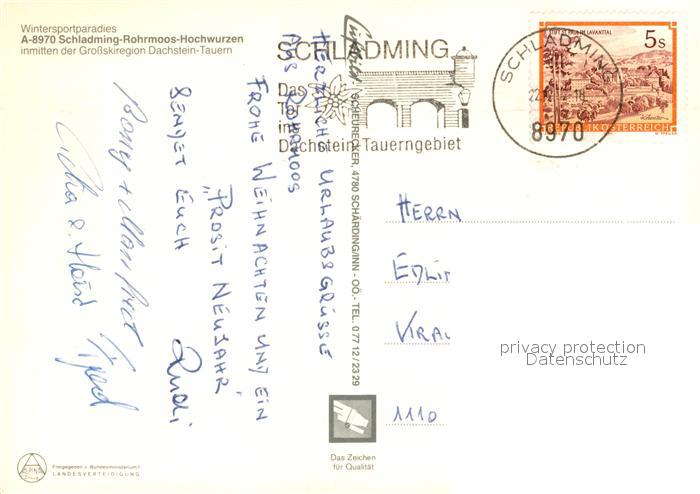 Wintersportparadies
A-8970 Schladming-Rohrmoos-Hochwurzen
inmitten der Großskiregion Dachstein-Tauern
SCHLADMING
Das
Tor
im
Dachstein-Tauerngebiet
SCHLADMING
8970
STIFT ST. PAUL IM LAVANTTAL
5s
REPUBLIK ÖSTERREICH
HERZLICHE URLAUBSGRÜSSE
AUS ROHRMOOS
FROHE WEIHNACHTEN UND EIN
"PROSIT NEUJAHR"
SENDET EUCH
Rudi
SCHEURECKER, 4780 SCHÄRDING/INN - OÖ. - TEL. 0 77 12 / 23 29
HERRN
1110
privacy protection
Datenschutz
Das Zeichen
für Qualität
ALPINE
Freigegeben v. Bundesministerium f.
LANDESVERTEIDIGUNG